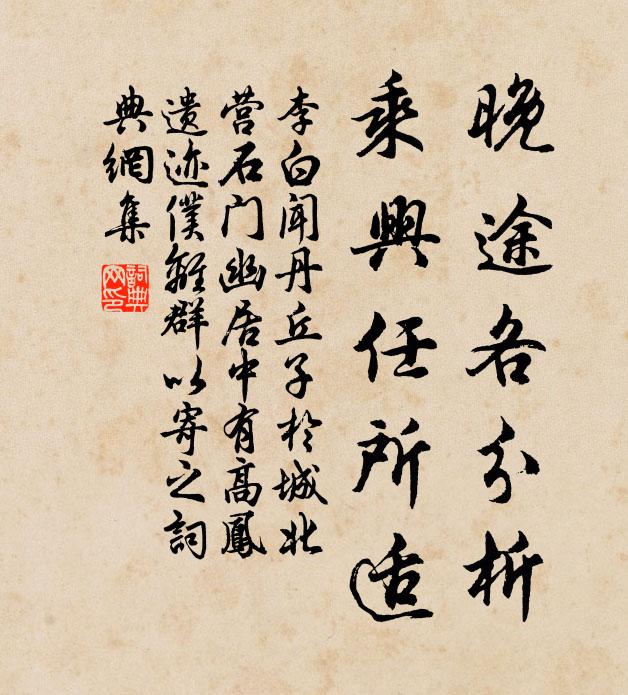 晚途各分析
乘興任所适
李白闻丹丘子於城北
营石门幽居中有高鳳
遗迹僕離群以寄之詞
典網集
詞典
网印